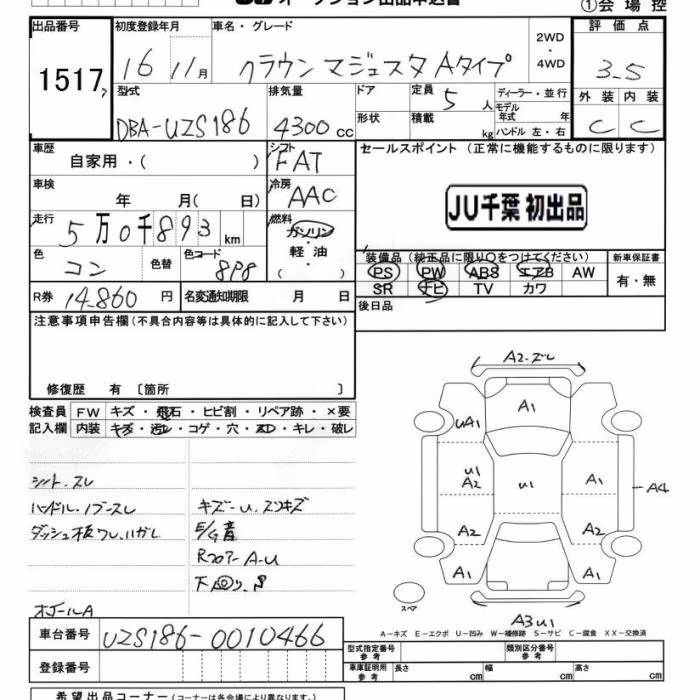 オークション出品申込書
①会場控
出品番号 初度登録年月 車名・グレード 2WD・4WD 評価点
1517 16 11月 クラウン マジェスタ Aタイプ 3.5
型式 排気量 ドア 定員 5人 ディーラー・並行 外装 内装
DBA-UZS186 4300cc 形状 積載 kg モデル年式 年 ハンドル 左・右 C C
車歴 自家用・( ) シフト FAT セールスポイント (正常に機能するものに限ります)
車検 年 月( 日) 冷房 AAC
JU千葉 初出品
走行 5万0千893km 燃料 ガソリン・軽油・( )
色 コン 色替 色コード 8P8 装備品 (純正品に限り○をつけてください) 新車保証書
PS PW ABS エアB AW 有・無
SR ナビ TV カワ
R券 14,860円 名変通知期限 月 日 後日品
注意事項申告欄(不具合内容等は具体的に記入して下さい)
修復歴 有 〔箇所 〕
検査員 FW キズ・飛石・ヒビ割・リペア跡・×要
記入欄 内装 キズ・汚レ・コゲ・穴・スレ・キレ・破レ
シート.スレ
ハンドル.ノブースレ
キズ-U.スリキズ
ダッシュ板ワレ.ハガレ
Rフロアー A-U
A2-ズレ
A1
UA1
U1
A2
U1
A1
A4
A2
A2
A1
A1
スペア
A3 U1
A-キズ E-エクボ U-凹み W-補修跡 S-サビ C-腐食 XX-交換済
車台番号 UZS186-0010466
型式指定番号 参考 類別区分番号 参考
登録番号
車庫証明用 参考 長さ cm 幅 cm 高さ cm
希望出品コーナー(コーナーは各会場により異なります。)